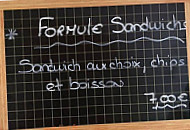 * FORMULE SANDWICHS
Sandwich au choix, chips
et boisson
7,00€